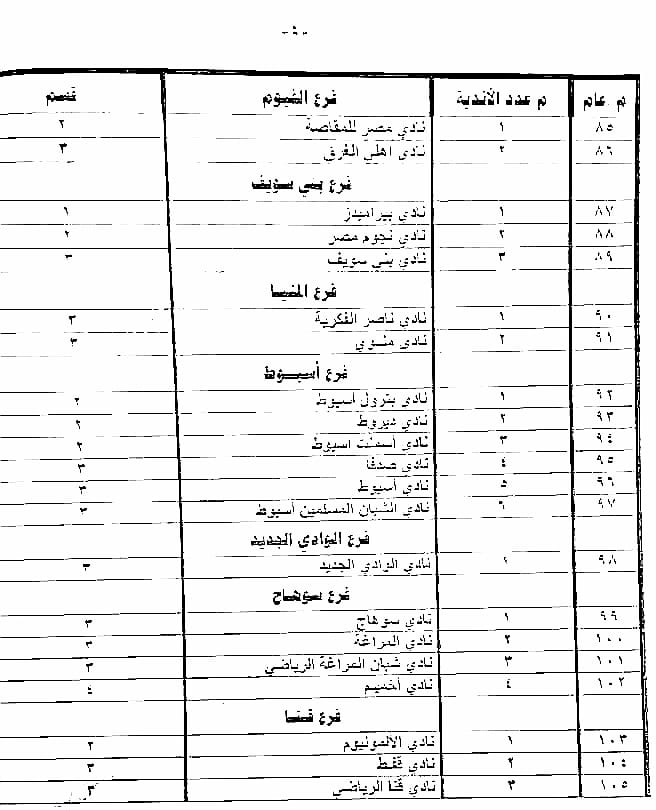 - ٩ -
م عام م عدد الأندية فرع الفيوم قسم
٨٥ ١ نادي مصر للمقاصة ٢
٨٦ ٢ نادي اهلي الغرق ٣
فرع بني سويف
٨٧ ١ نادي بيراميدز ١
٨٨ ٢ نادي نجوم مصر ٢
٨٩ ٣ نادي بني سويف ٣
فرع المنيا
٩٠ ١ نادي ناصر الفكرية ٣
٩١ ٢ نادي ملوي ٣
فرع أسيوط
٩٢ ١ نادي بترول أسيوط ٢
٩٣ ٢ نادي ديروط ٢
٩٤ ٣ نادي أسمنت اسيوط ٢
٩٥ ٤ نادي صدفا ٣
٩٦ ٥ نادي أسيوط ٣
٩٧ ٦ نادي الشبان المسلمين أسيوط ٣
فرع الوادي الجديد
٩٨ ١ نادي الوادي الجديد ٣
فرع سوهاج
٩٩ ١ نادي سوهاج ٣
١٠٠ ٢ نادي المراغة ٣
١٠١ ٣ نادي شبان المراغة الرياضي ٣
١٠٢ ٤ نادي أخميم ٤
فرع قنا
١٠٣ ١ نادي الألمونيوم ٢
١٠٤ ٢ نادي قفط ٣
١٠٥ ٣ نادي قنا الرياضي ٣